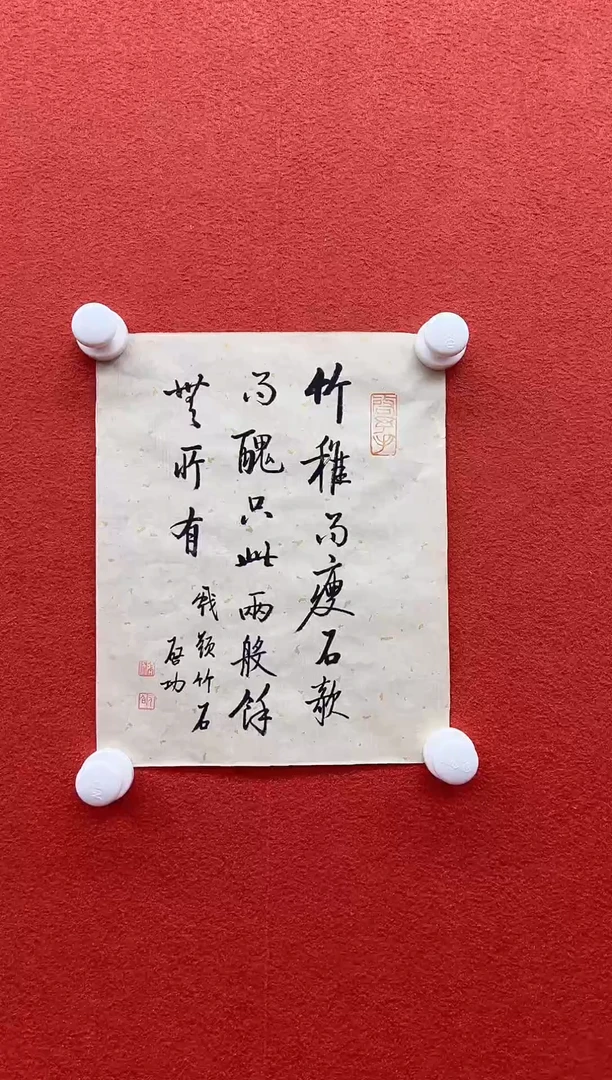 竹稚而瘦石欹
而醜只此兩般餘
無所有
戲題竹石
啓功